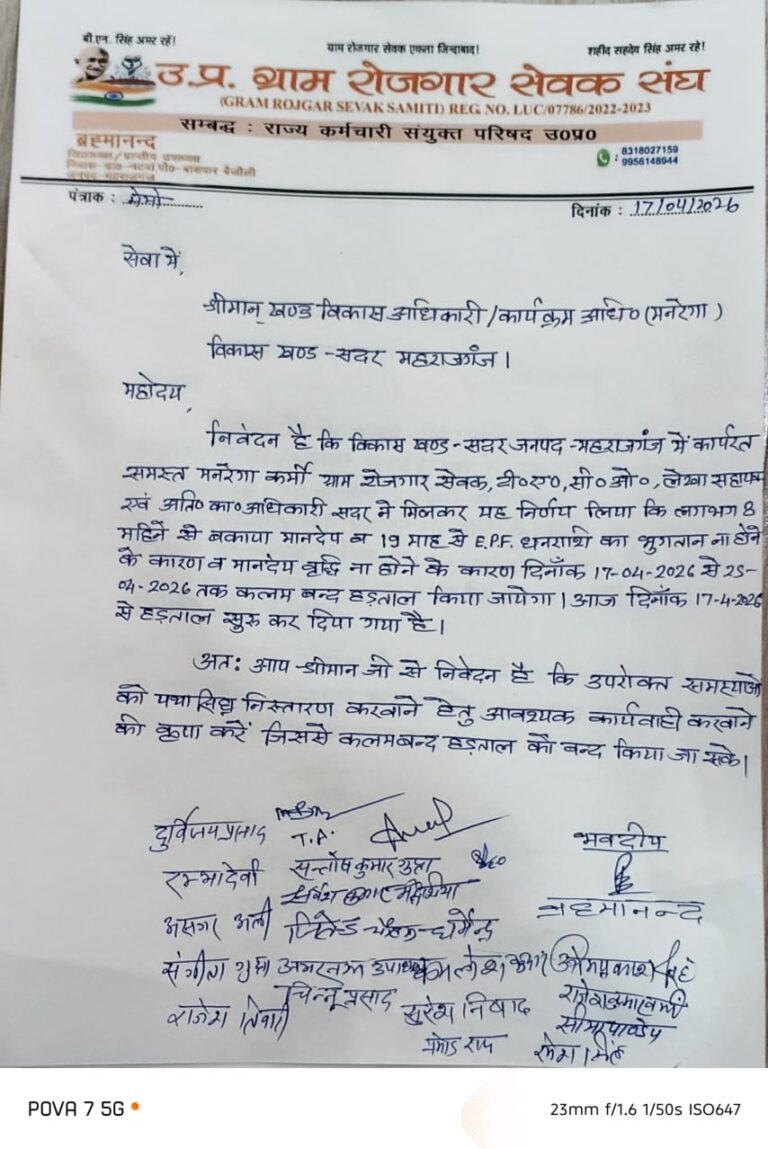 बी.एन. सिंह अमर रहें!
ग्राम रोजगार सेवक एकता जिन्दाबाद!
शहीद सहदेव सिंह अमर रहे!
उ.प्र. ग्राम रोजगार सेवक संघ
(GRAM ROJGAR SEVAK SAMITI) REG. NO. LUC/07786/2022-2023
सम्बद्ध : राज्य कर्मचारी संयुक्त परिषद उ0प्र0
ब्रह्मानन्द
जिलाध्यक्ष/प्रान्तीय उपाध्यक्ष
जनपद महराजगंज
8318027159
9956148944
पंत्राक : मेमो
दिनांक : 17/04/2026
सेवा में,
श्रीमान् खण्ड विकास अधिकारी/कार्यक्रम अधि० (मनरेगा)
विकास खण्ड - सदर महराजगंज।
महोदय,
निवेदन है कि विकास खण्ड-सदर जनपद-महराजगंज में कार्यरत
समस्त मनरेगा कर्मी ग्राम रोजगार सेवक, टी०ए०, सी०ओ०, लेखा सहायक
एवं अति० का० अधिकारी सदर ने मिलकर यह निर्णय लिया कि लगभग 8
महिने से बकाया मानदेय व 19 माह से E.P.F. धनराशी का भुगतान ना होने
के कारण व मानदेय वृद्धि ना होने के कारण दिनाँक 17-04-2026 से 25-
04-2026 तक कलम बन्द हड़ताल किया जायेगा। आज दिनाँक 17-4-2026
से हड़ताल सुरु कर दिया गया है।
अत: आप श्रीमान जी से निवेदन है कि उपरोक्त समस्याओ
को यथा सिघ्र निस्तारण करवाने हेतु आवश्यक कार्यवाही करवाने
की कृपा करें जिससे कलमबन्द हड़ताल को बन्द किया जा सके।
दुर्विजय प्रसाद
T.A.
भवदीय
रम्भादेवी
सन्तोष कुमार गुप्ता
ब्रहमानन्द
असगर अली
धर्मेन्द्र
संगीता गुप्ता
अमरनाथ उपाध्याय
कमलेश कुमार
ओमप्रकाश सिंह
राजेश तिवारी
चिन्नू प्रसाद
सुरेश निषाद
सीमा पाण्डेय
प्रमोद राय
POVA 7 5G
23mm f/1.6 1/50s ISO647